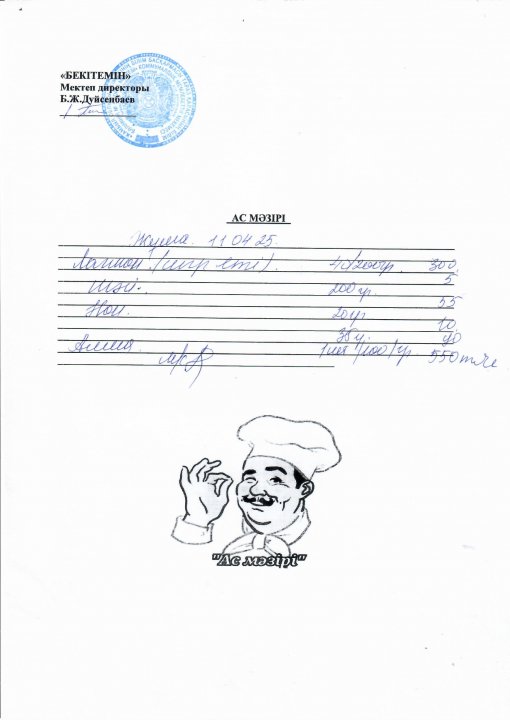 «БЕКІТЕМІН»
Мектеп директоры
Б.Ж.Дуйсенбаев
АС МӘЗІРІ
Жұма. 11 04 25.
Лагман (сиыр еті). 40/200гр. 300
5
Шәй. 200 гр.
55
Нан. 20гр
10
38гр. 90
Алма 1шт /100/гр. 550 тге
"Ас мәзірі"